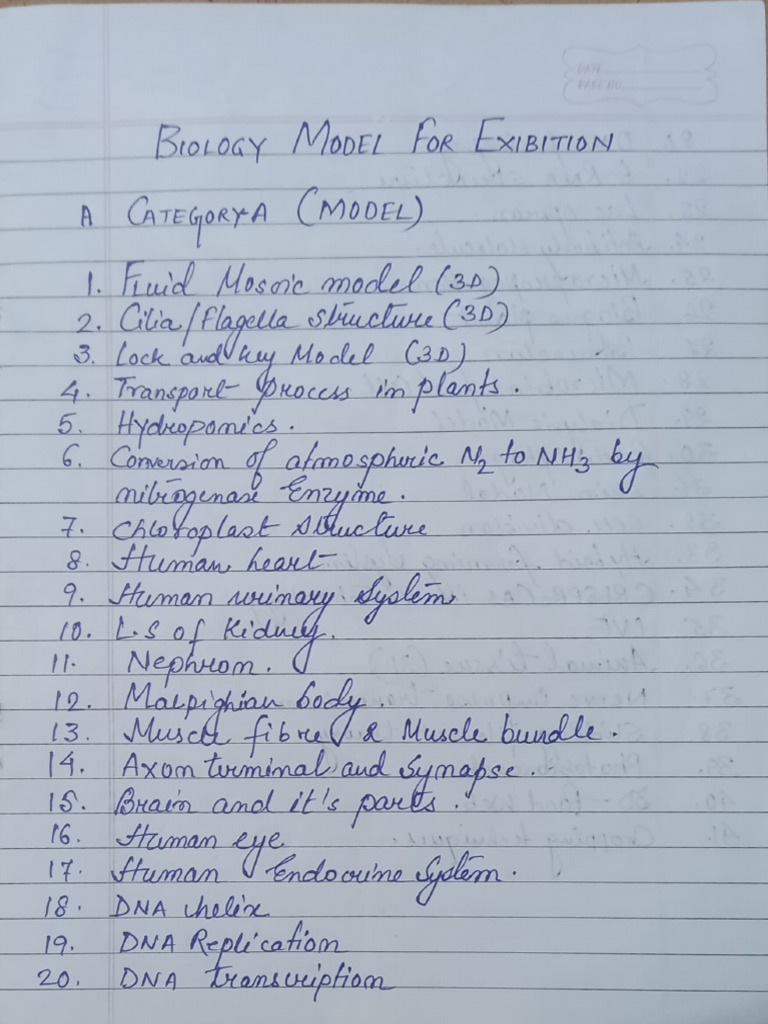 DATE
PAGE NO.
BIOLOGY MODEL FOR EXIBITION
A CATEGORY-A (MODEL)
1. Fluid Mosaic model (3D)
2. Cilia/Flagella structure (3D)
3. Lock and key Model (3D)
4. Transport process in plants.
5. Hydroponics.
6. Conversion of atmospheric N2 to NH3 by
nitrogenase Enzyme.
7. chloroplast structure
8. Human heart
9. Human urinary System
10. L.S of Kidney.
11. Nephron.
12. Malpighian body.
13. Muscle fibre & Muscle bundle.
14. Axon terminal and Synapse.
15. Brain and it's parts.
16. Human eye
17. Human Endocrine System.
18. DNA helix
19. DNA Replication
20. DNA transcription